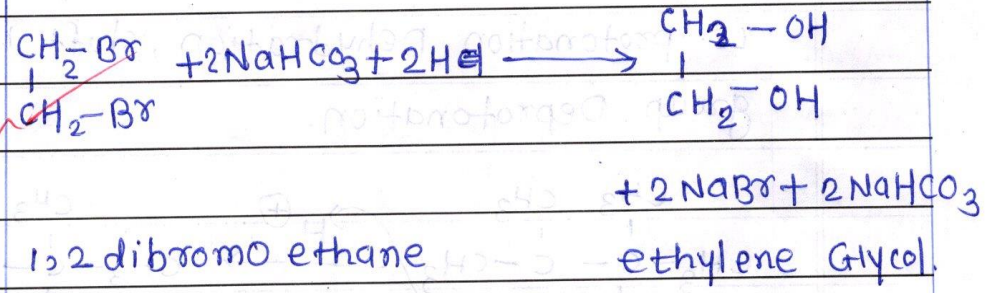 CH2-Br +2NaHCO3+ 2H ⟶ CH2-OH
CH2-Br CH2-OH
+ 2 NaBr+ 2 NaHCO3
1,2 dibromo ethane ethylene Glycol.